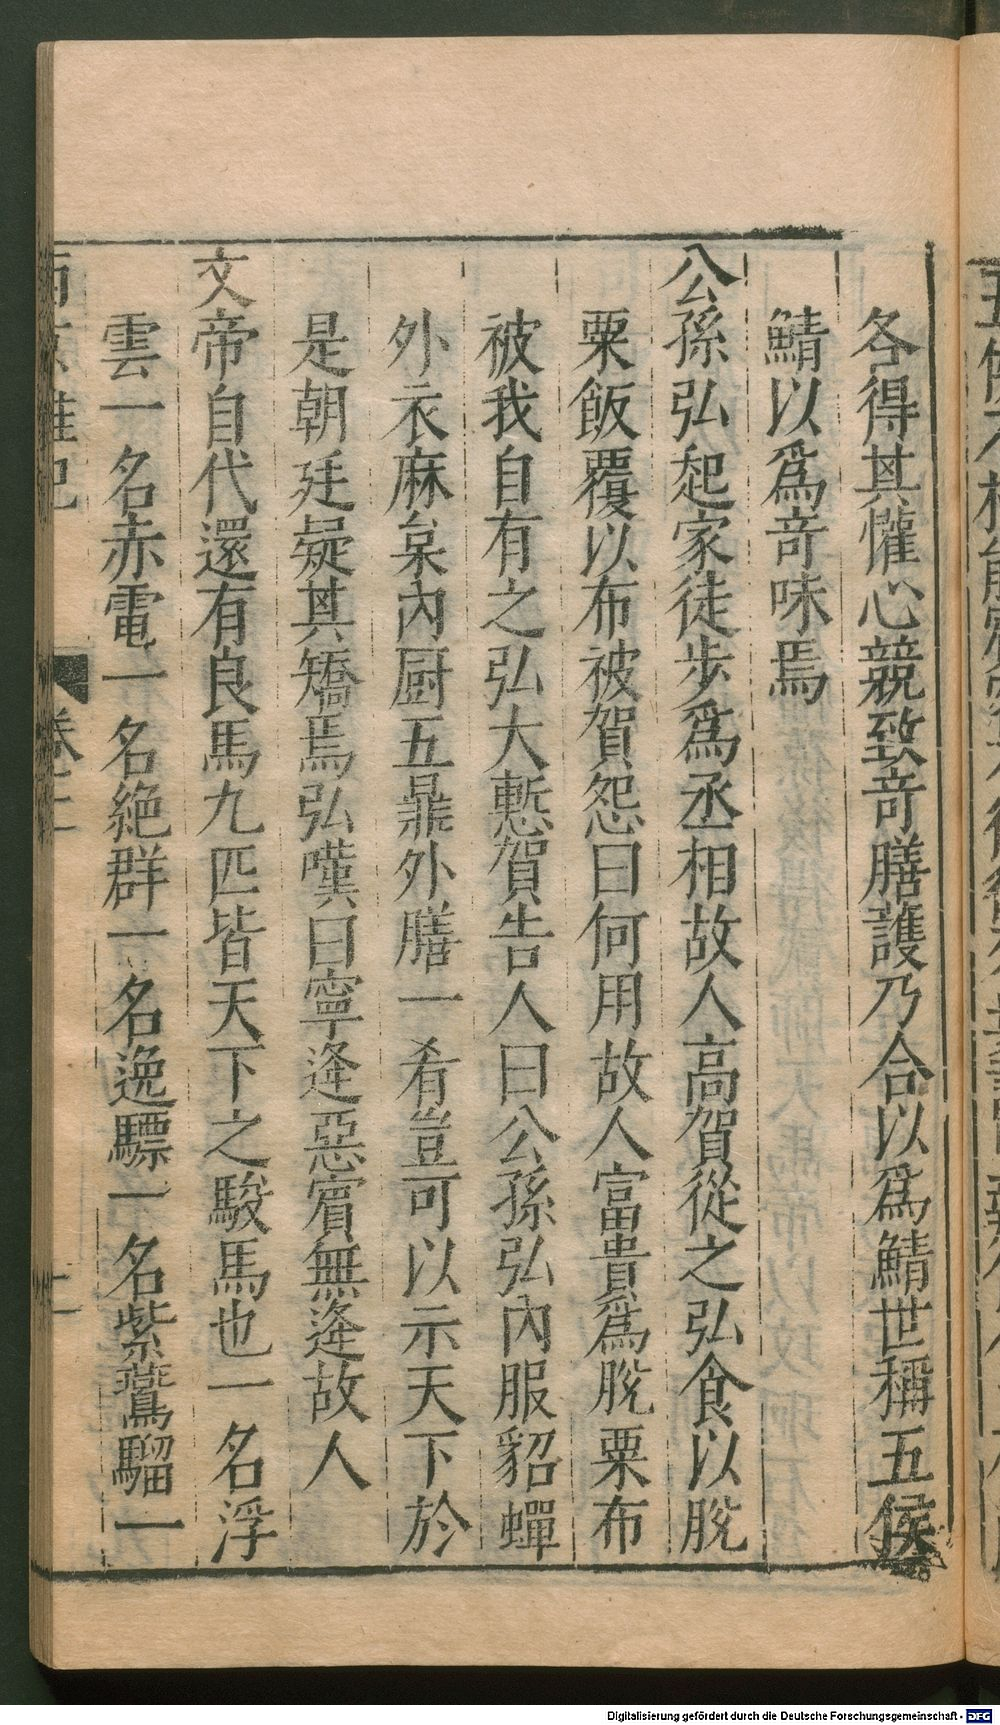 各得其懽心競致竒膳護乃合以爲鯖世稱五侯
鯖以爲竒味焉
公孫弘起家徒步爲丞相故人高賀從之弘食以脫
粟飯覆以布被賀怨曰何用故人富貴爲脫粟布
被我自有之弘大慙賀告人曰公孫弘內服貂蟬
外衣麻枲內厨五鼎外膳一肴豈可以示天下於
是朝廷疑其矯焉弘嘆曰寧逢惡賓無逢故人
文帝自代還有良馬九匹皆天下之駿馬也一名浮
雲一名赤電一名絶群一名逸驃一名紫鷰騮一
卷二
Digitalisierung gefördert durch die Deutsche Forschungsgemeinschaft - DFG